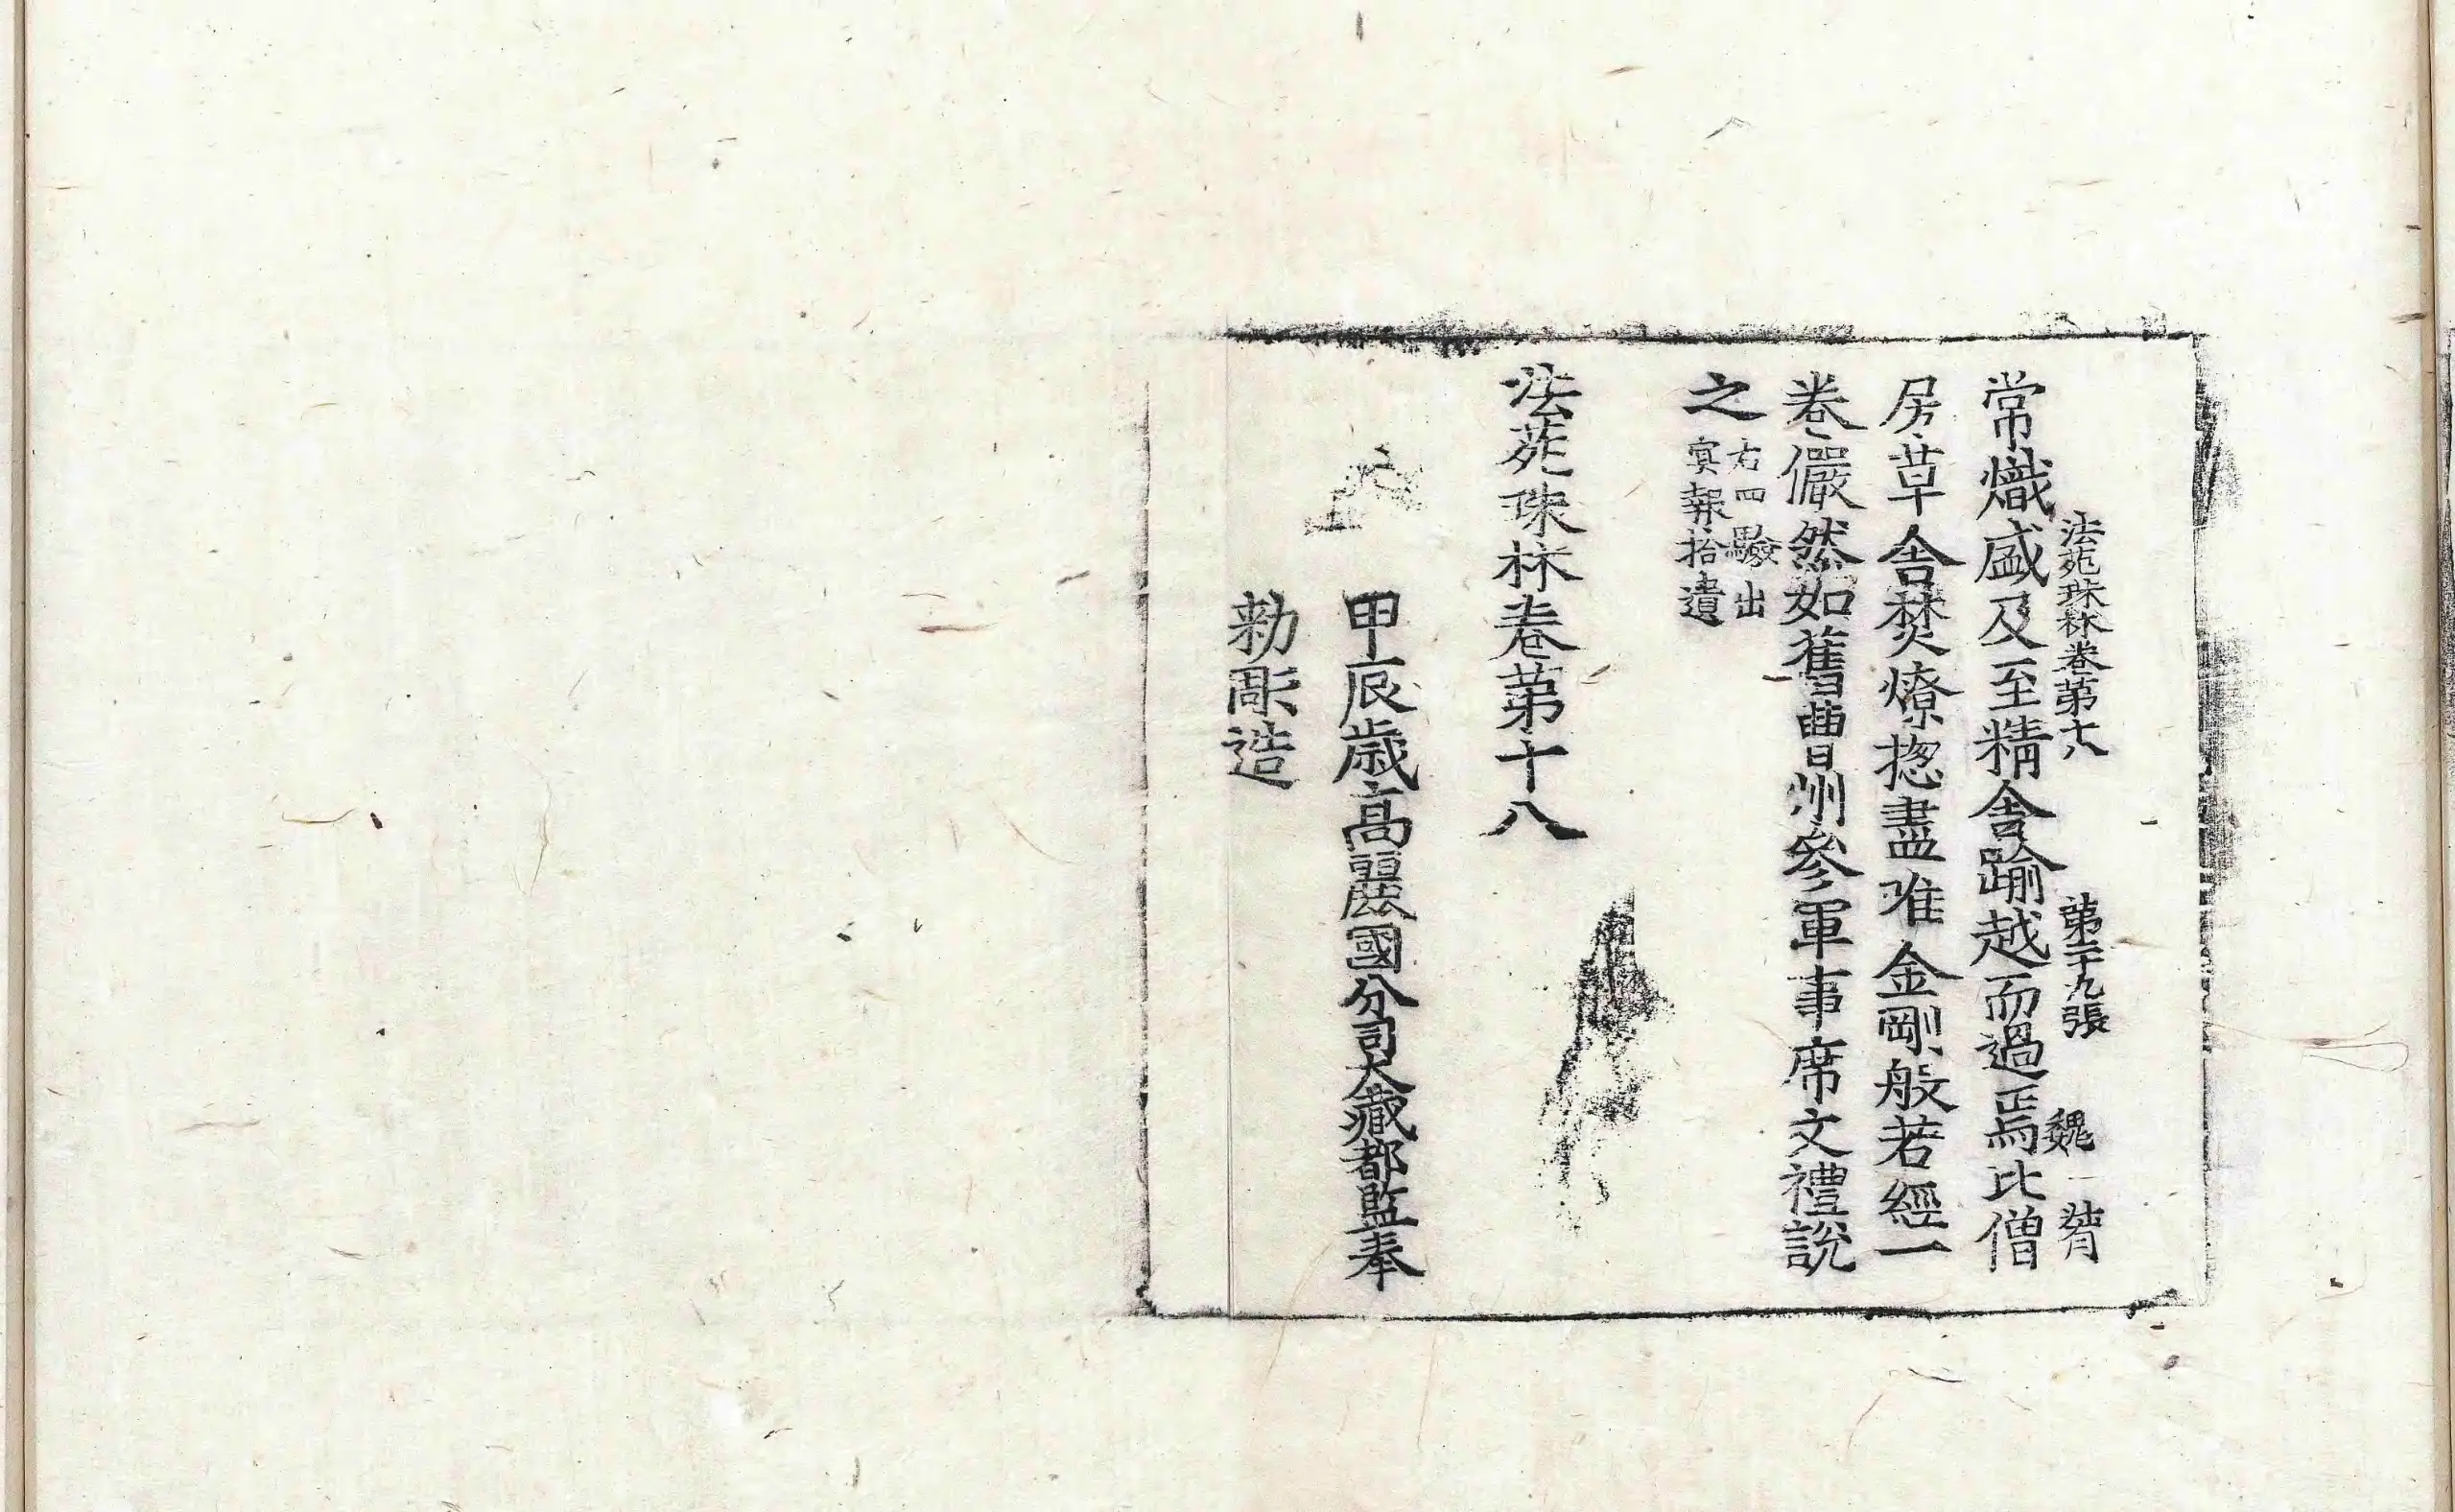 法苑珠林卷第十八 第二十九張 魏
常熾盛及至精舍踰越而過焉比僧
房草舍焚燎揔盡唯金剛般若經一
卷儼然如舊曹州參軍事席文禮說
之
右四驗出
冥報拾遺
法苑珠林卷第十八
甲辰歲高麗國分司大藏都監奉
勅彫造